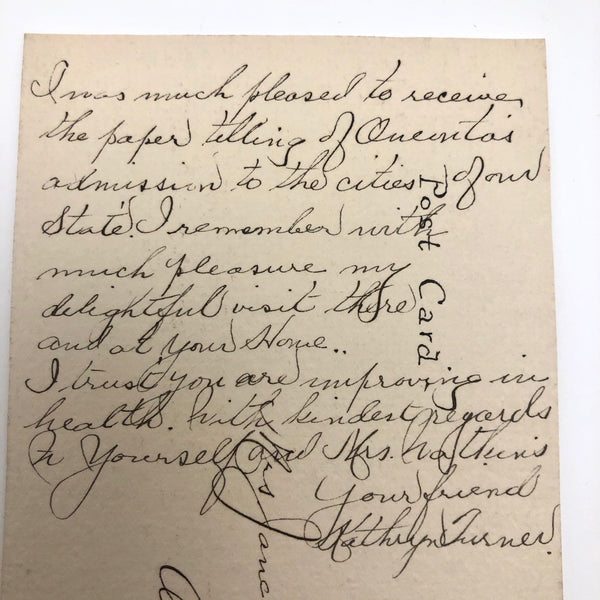 I was much pleased to receive
the paper telling of Oneonta's
admission to the cities of our
State. I remember with
much pleasure my
delightful visit there
and at your Home..
I trust you are improving in
health. With kindest regards
to Yourself and Mrs. Watkins
Your friend
Kathryn Turner.
Post Card
Mrs